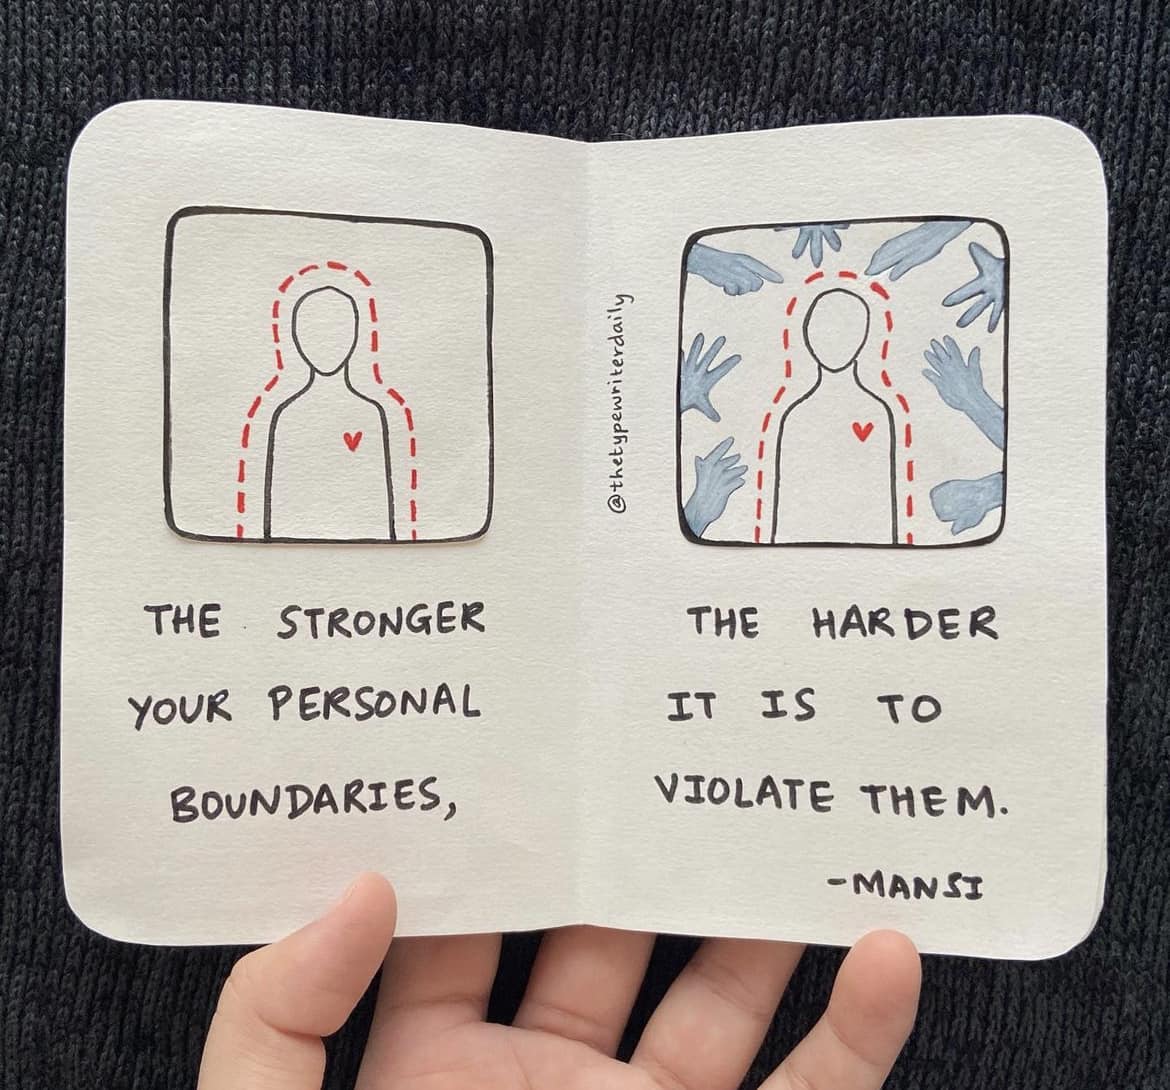 THE STRONGER
YOUR PERSONAL
BOUNDARIES,
@thetypewriterdaily
THE HARDER
IT IS TO
VIOLATE THEM.
-MANSI